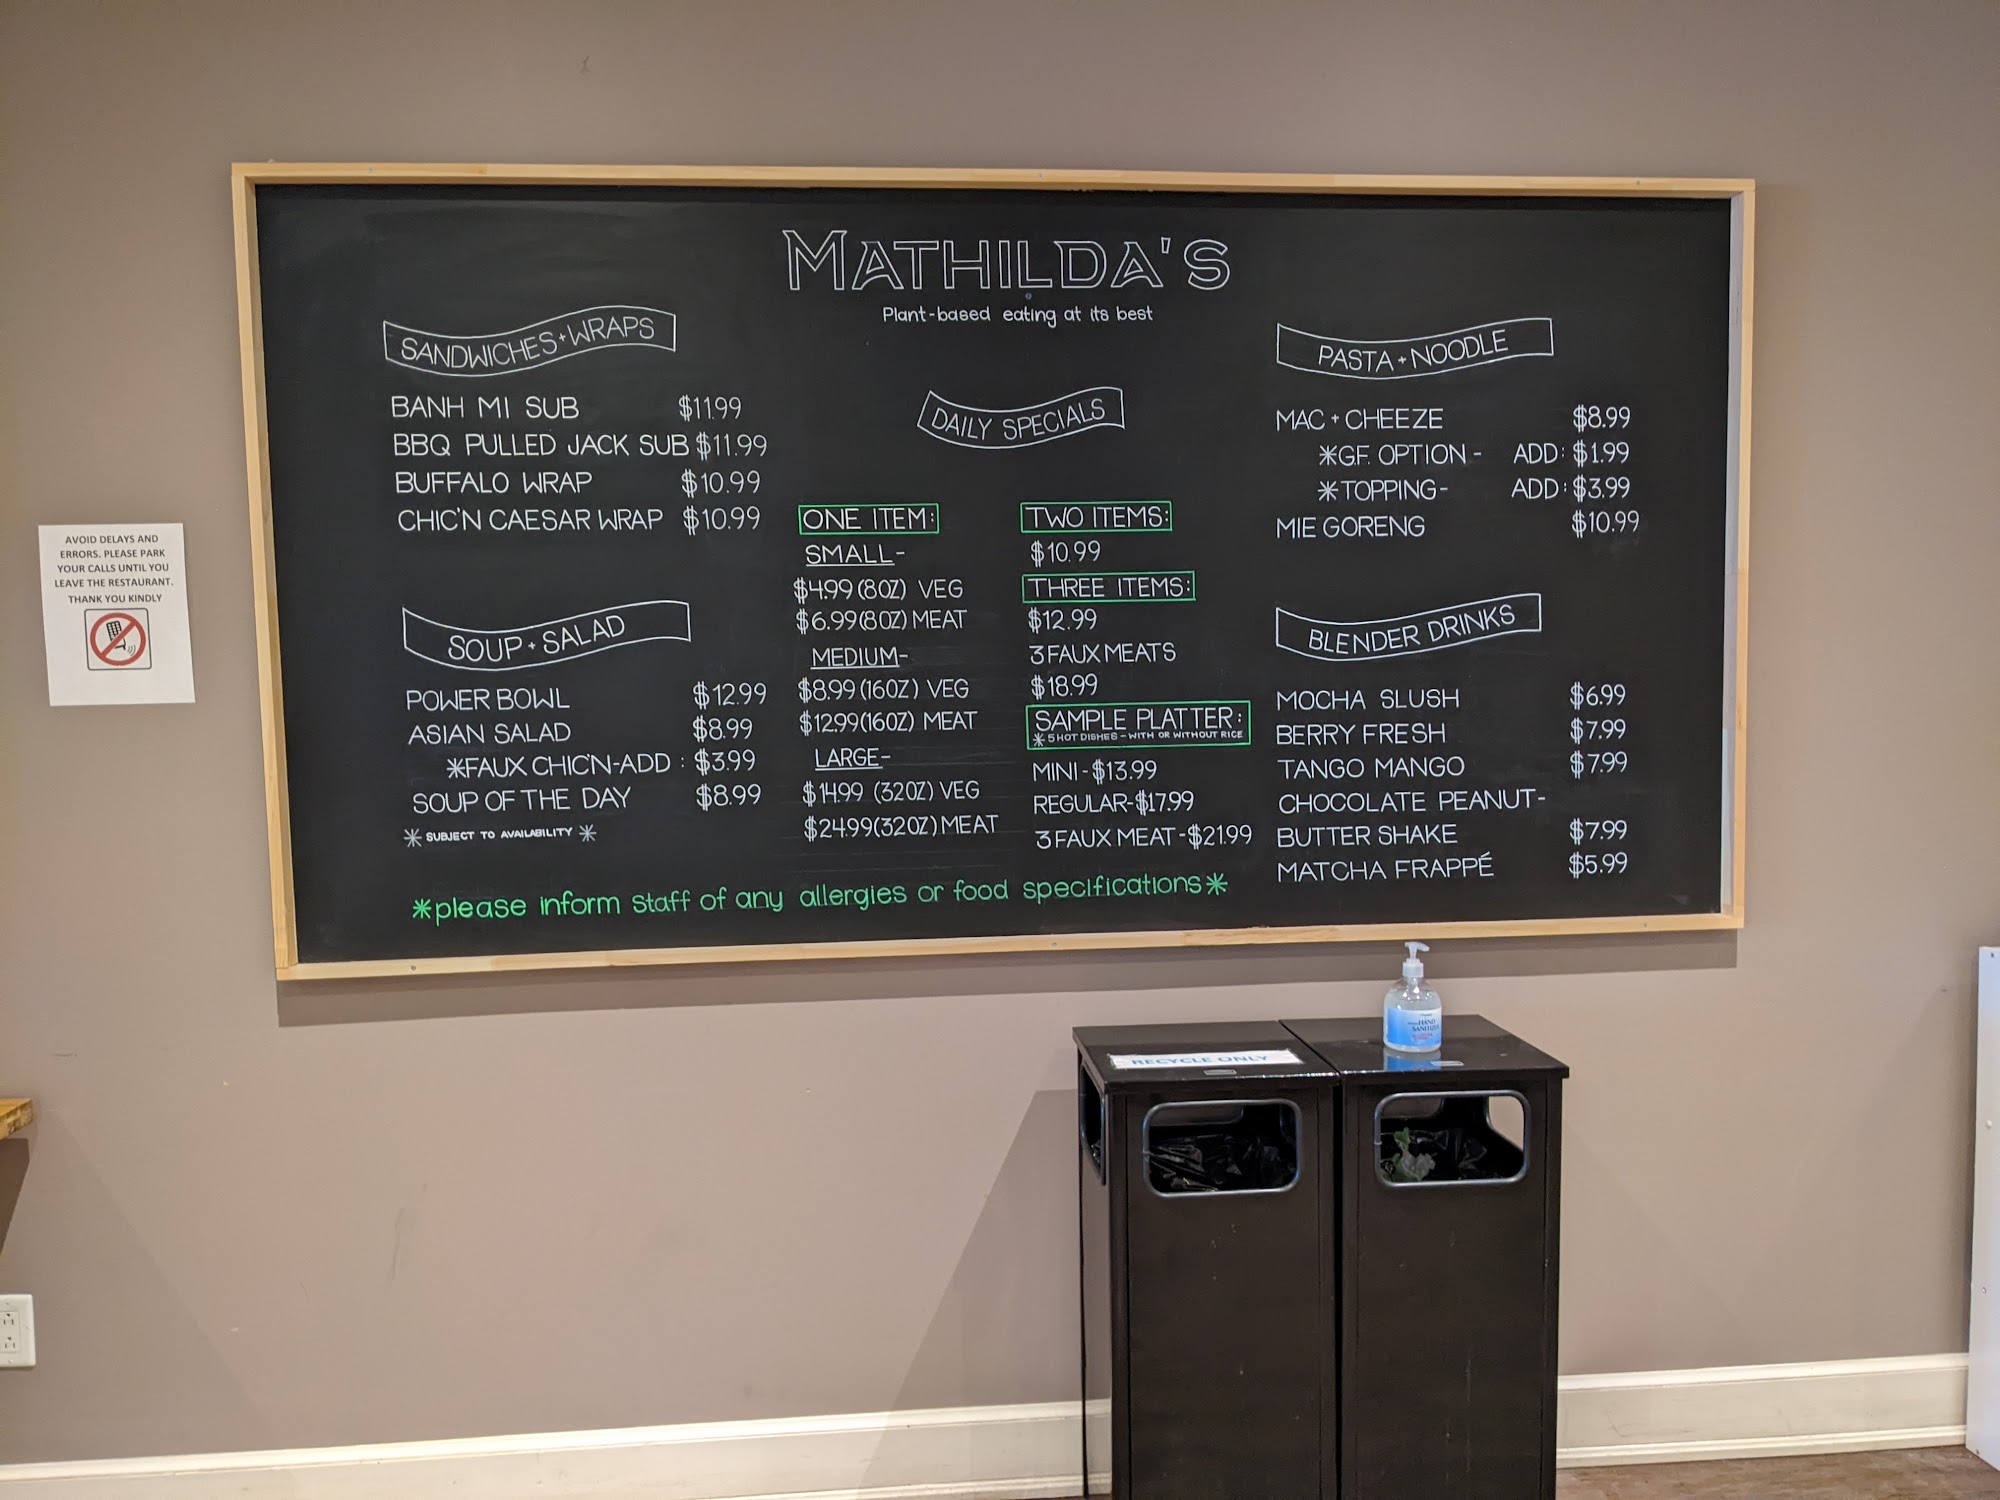 MATHILDA'S
Plant-based eating at its best
SANDWICHES+WRAPS
BANH MI SUB $11.99
BBQ PULLED JACK SUB $11.99
BUFFALO WRAP $10.99
CHIC'N CAESAR WRAP $10.99
SOUP + SALAD
POWER BOWL $12.99
ASIAN SALAD $8.99
*FAUX CHIC'N-ADD : $3.99
SOUP OF THE DAY $8.99
* SUBJECT TO AVAILABILITY *
DAILY SPECIALS
ONE ITEM:
SMALL-
$4.99 (8OZ) VEG
$6.99 (8OZ) MEAT
MEDIUM-
$8.99 (16OZ) VEG
$12.99 (16OZ) MEAT
LARGE-
$14.99 (32OZ) VEG
$24.99 (32OZ) MEAT
TWO ITEMS:
$10.99
THREE ITEMS:
$12.99
3 FAUX MEATS
$18.99
SAMPLE PLATTER:
* 5 HOT DISHES - WITH OR WITHOUT RICE
MINI - $13.99
REGULAR - $17.99
3 FAUX MEAT - $21.99
PASTA + NOODLE
MAC + CHEEZE $8.99
*G.F. OPTION - ADD: $1.99
*TOPPING- ADD: $3.99
MIE GORENG $10.99
BLENDER DRINKS
MOCHA SLUSH $6.99
BERRY FRESH $7.99
TANGO MANGO $7.99
CHOCOLATE PEANUT-
BUTTER SHAKE $7.99
MATCHA FRAPPÉ $5.99
*please inform staff of any allergies or food specifications*
AVOID DELAYS AND
ERRORS. PLEASE PARK
YOUR CALLS UNTIL YOU
LEAVE THE RESTAURANT.
THANK YOU KINDLY
HAND
SANITIZER
RECYCLE ONLY